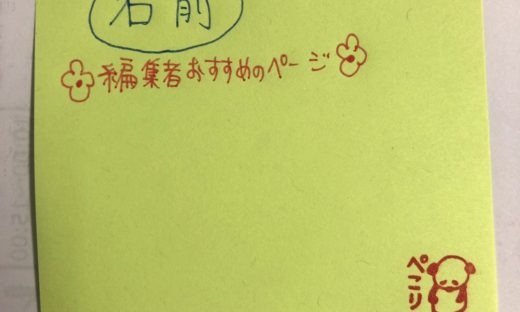 名前
編集者おすすめのページ
ぺこり